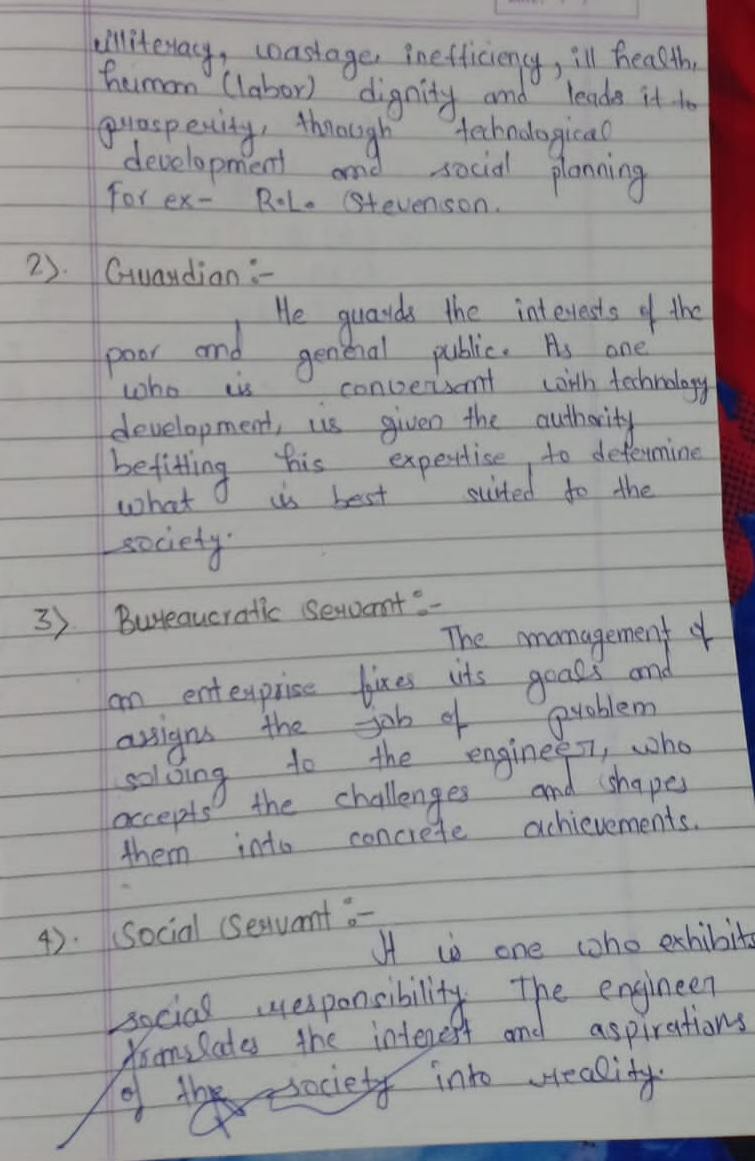 illiteracy, wastage, inefficiency, ill health,
human (labor) dignity and leads it to
prosperity, through technological
development and social planning
For ex- R.L. Stevenson.
2). Guardian :-
He guards the interests of the
poor and general public. As one
who is conversant with technology
development, is given the authority
befitting his expertise to determine
what is best suited to the
society.
3) Bureaucratic Servant :-
The management of
an enterprise fixes its goals and
assigns the job of problem
solving to the engineer, who
accepts the challenges and shapes
them into concrete achievements.
4). Social Servant :-
It is one who exhibits
social responsibility. The engineer
translates the interest and aspirations
of the society into reality.